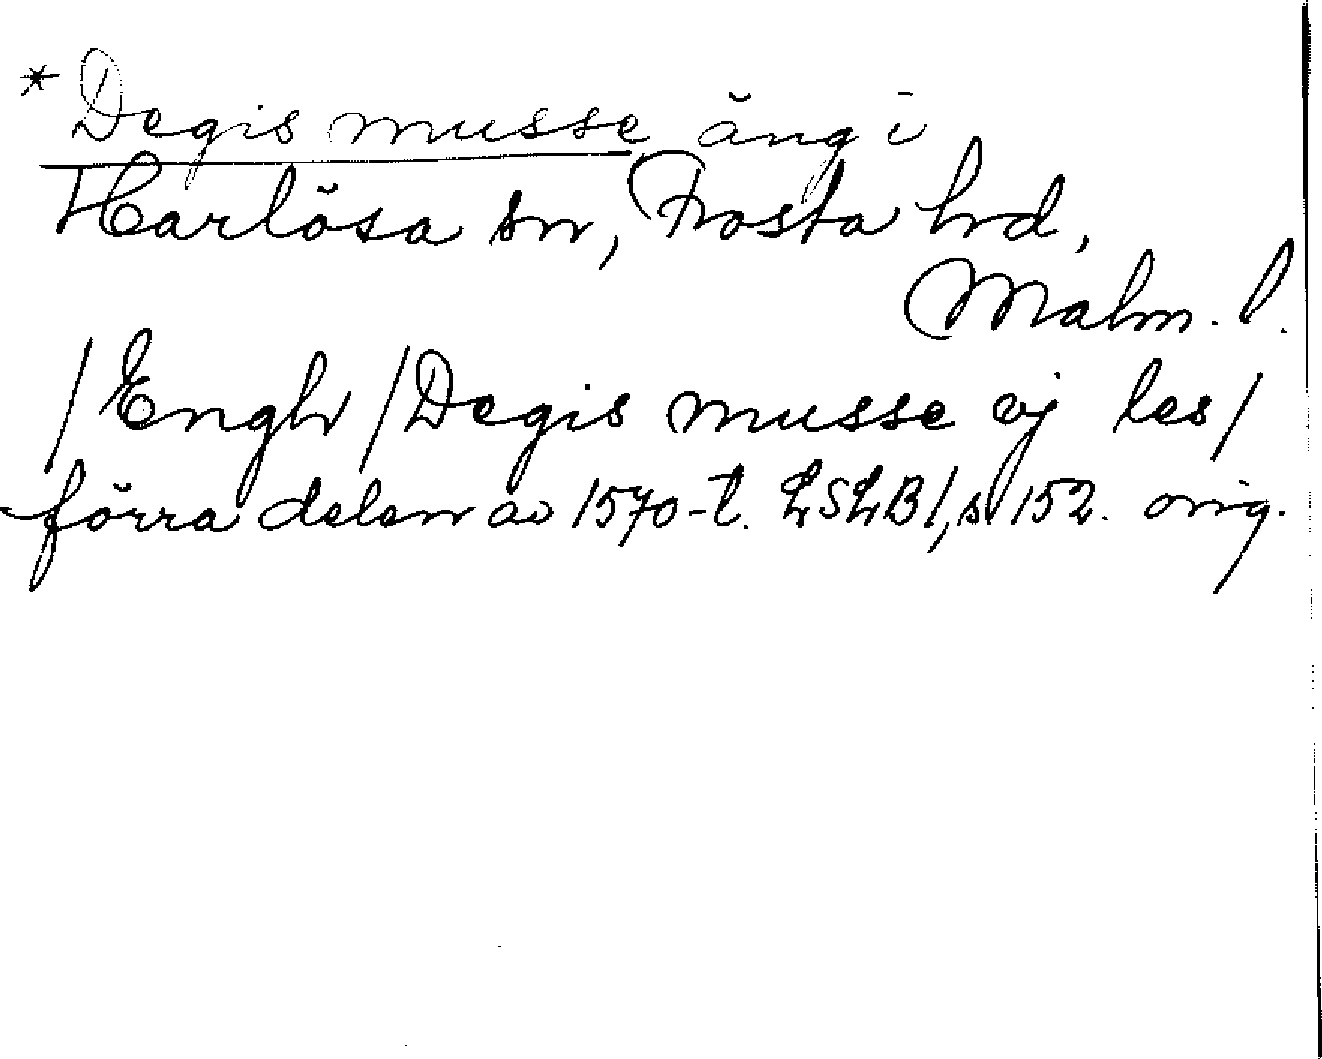 * Degis musse äng i
Harlösa sn, Frosta hd,
Malm. l.
/Engh/Degis musse ej les/
förra delen av 1570-t. LSLB1, s 152. orig.